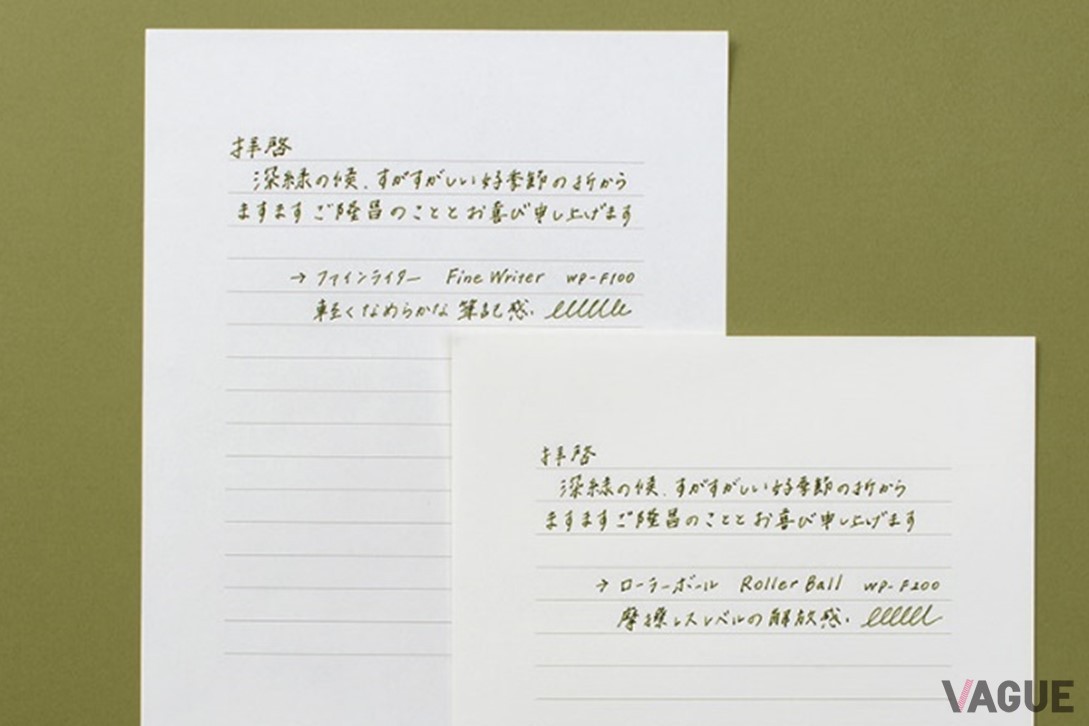 拝啓
深緑の候、すがすがしい好季節の折から
ますますご隆昌のこととお喜び申し上げます
→ ファインライター Fine Writer WP-F100
軽くなめらかな筆記感.
拝啓
深緑の候、すがすがしい好季節の折から
ますますご隆昌のこととお喜び申し上げます
→ ローラーボール Roller Ball WP-F200
摩擦レスレベルの解放感.
VAGUE